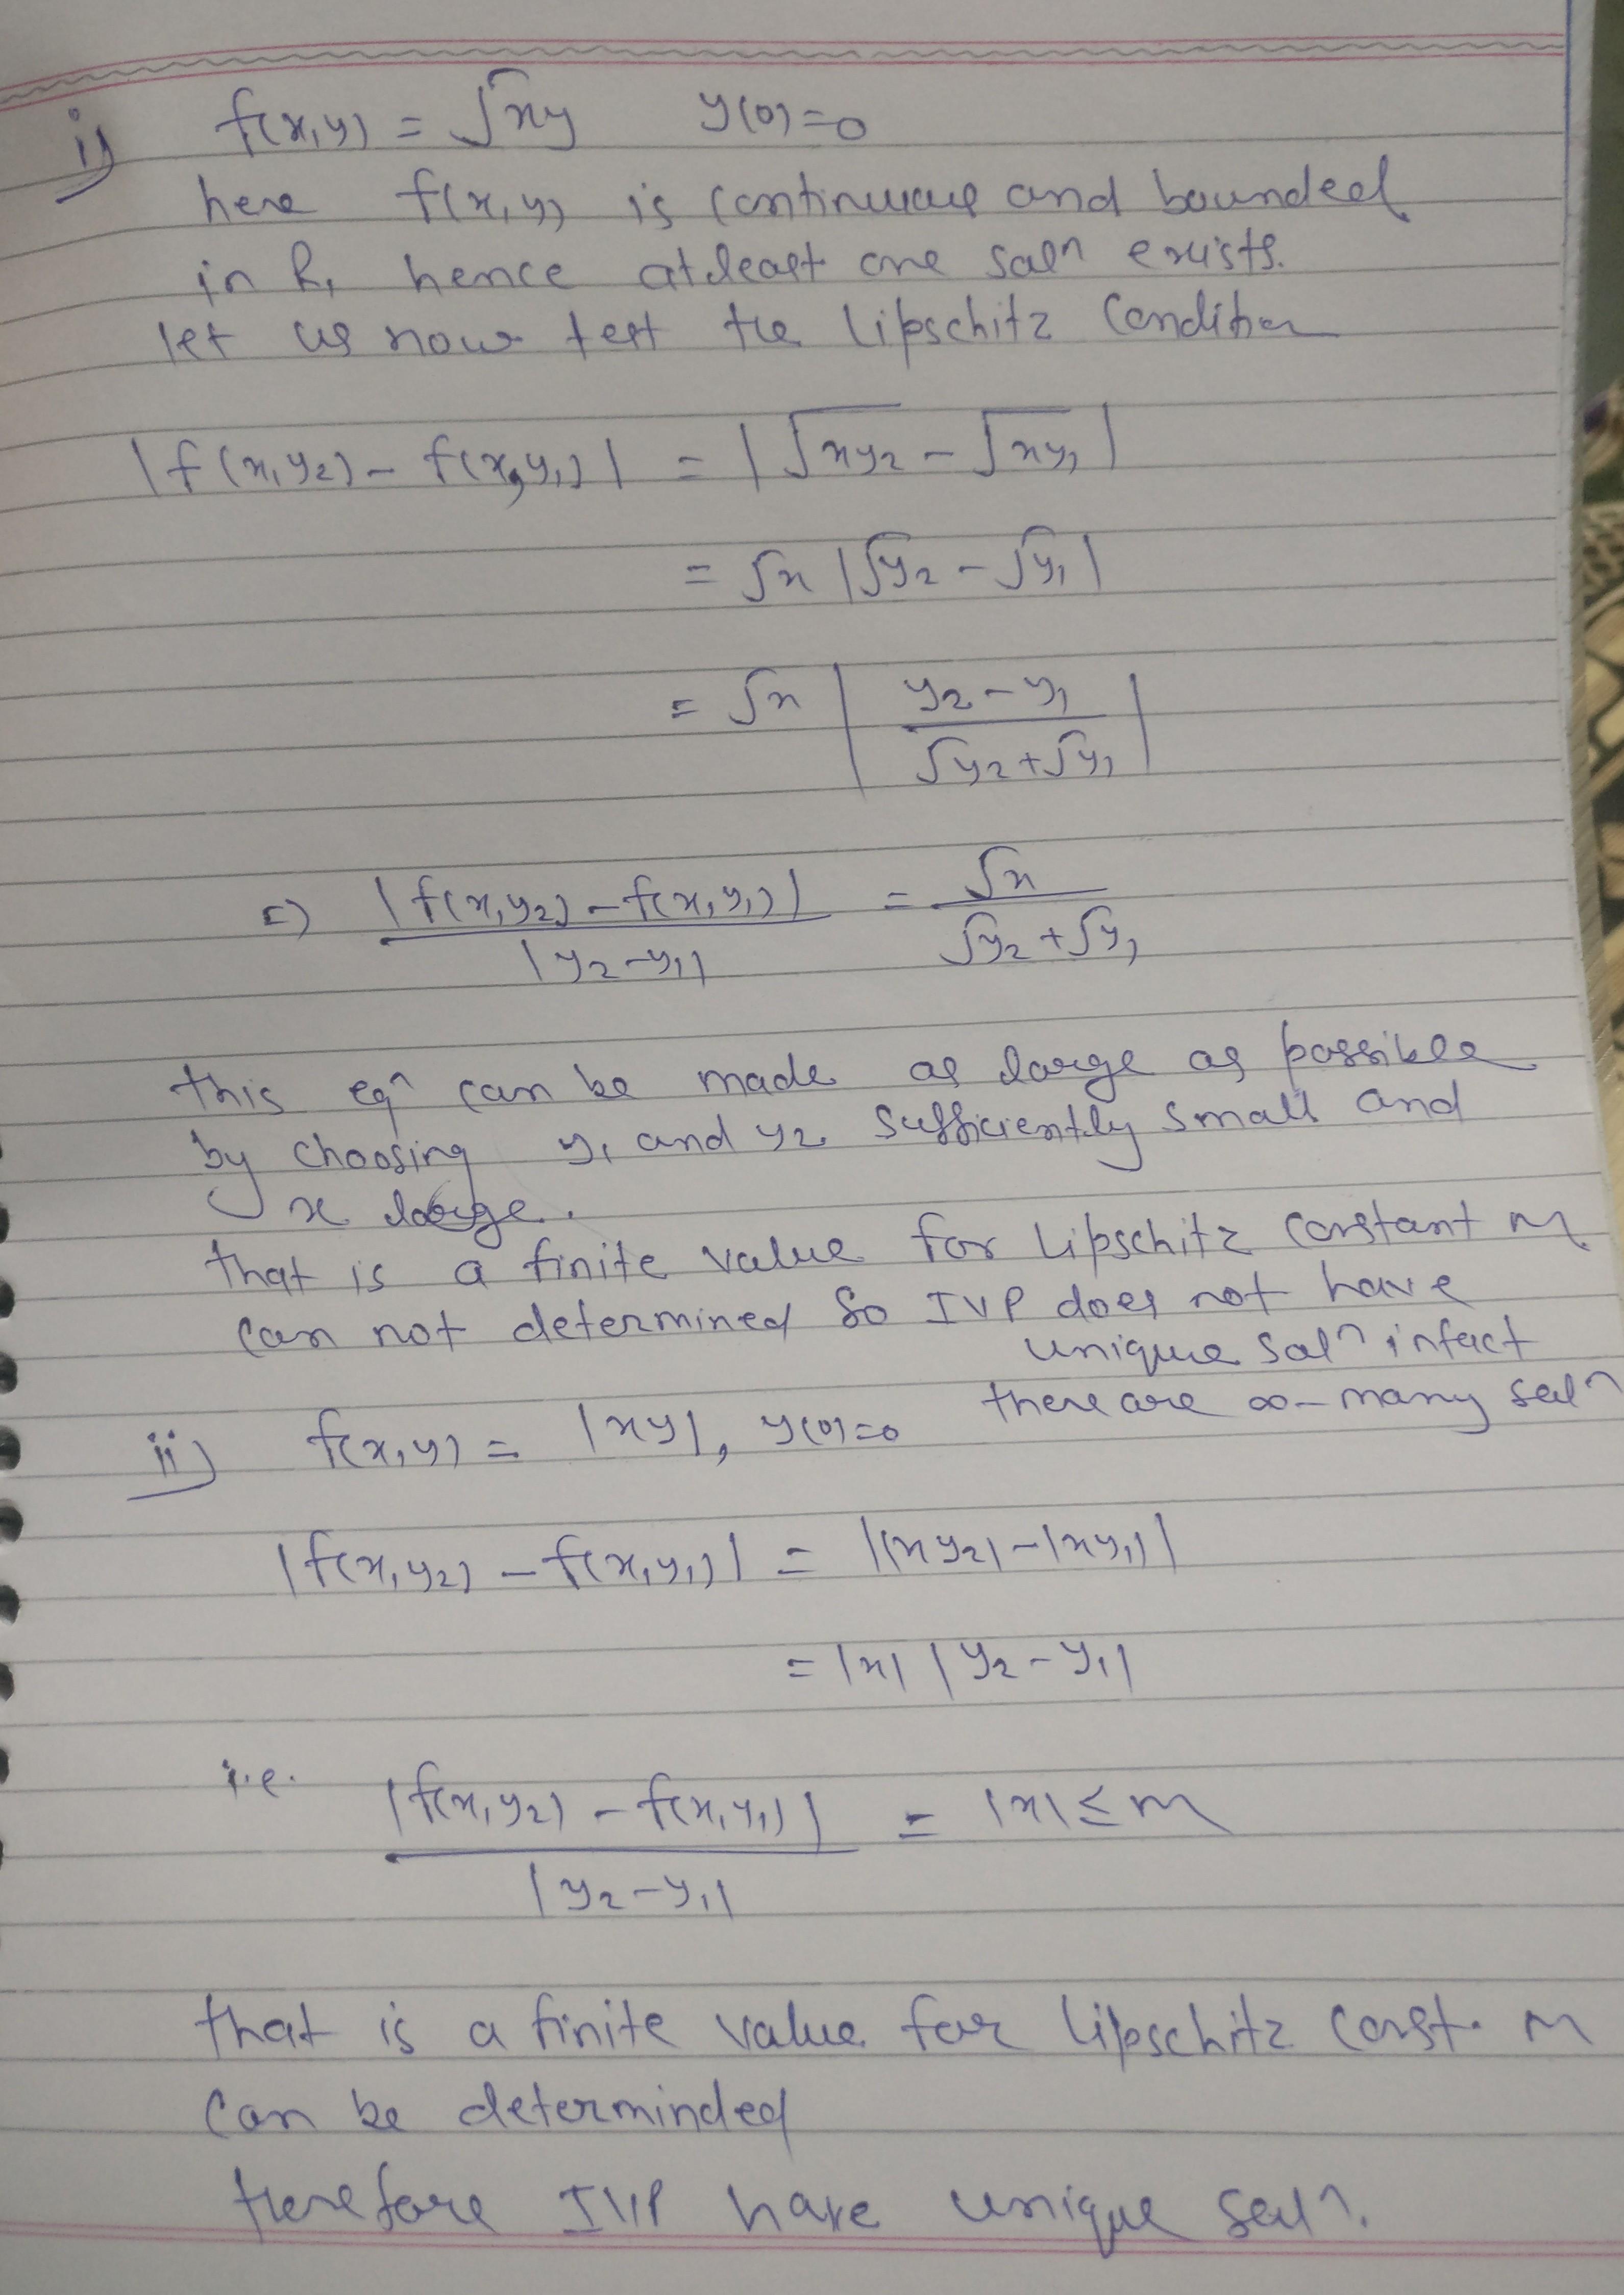 i) f(x,y) = √xy y(0)=0
here f(x,y) is continuous and bounded
in R, hence atleast one solⁿ exists.
let us now test the Lipschitz Condition
|f(x,y₂) - f(x,y₁)| = |√xy₂ - √xy₁|
= √x |√y₂ - √y₁|
= √x | (y₂ - y₁)/(√y₂+√y₁) |
=> |f(x,y₂) - f(x,y₁)| / |y₂-y₁| = √x / (√y₂ + √y₁)
this eqⁿ can be made as large as possible
by choosing y₁ and y₂ sufficiently small and
x large.
that is a finite value for Lipschitz constant M
can not determined so IVP does not have
unique solⁿ infact
there are ∞-many solⁿ
ii) f(x,y) = |xy|, y(0)=0
|f(x,y₂) - f(x,y₁)| = ||xy₂| - |xy₁||
= |x| |y₂ - y₁|
i.e. |f(x,y₂) - f(x,y₁)| / |y₂-y₁| = |x| ≤ M
that is a finite value for Lipschitz const. M
can be determinded
therefore IVP have unique solⁿ.